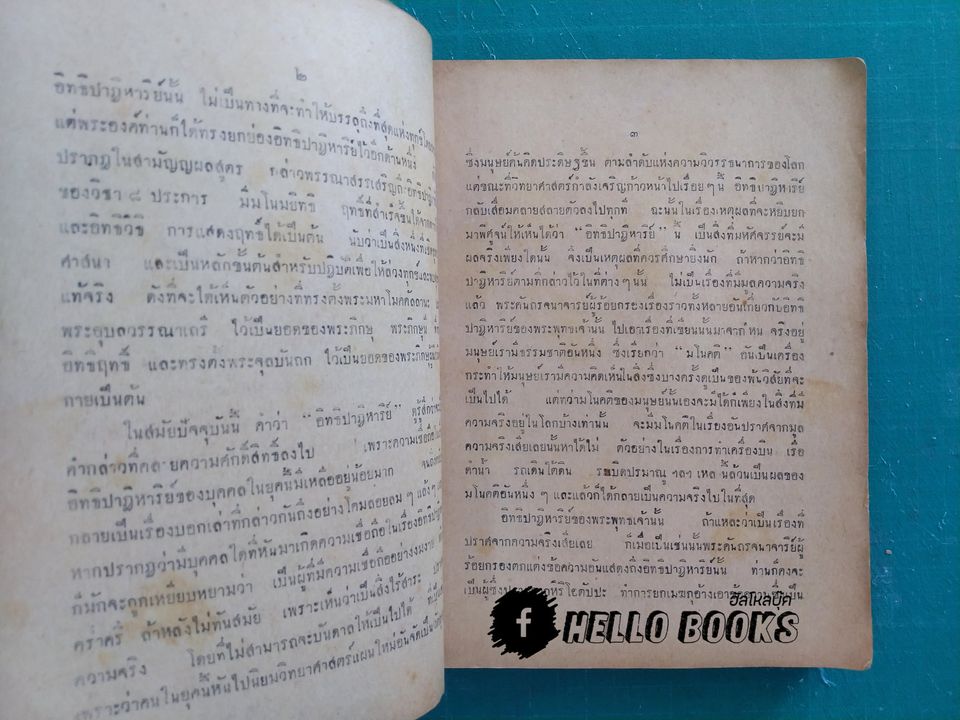 ๒
อิทธิปาฏิหาริย์นั้น ไม่เป็นทางที่จะทำให้บรรลุถึงที่สุดแห่งทุกข์
แต่พระองค์ท่านก็ได้ทรงยกย่องอิทธิปาฏิหาริย์ไว้อีกด้านหนึ่ง
ปรากฏในสามัญญผลสูตร กล่าวพรรณาสรรเสริญถึงอิทธิปาฏิ
ของวิชา ๘ ประการ มีมโนมยิทธิ ฤทธิ์ที่สำเร็จขึ้นได้จาก
และอิทธิวิธี การแสดงฤทธิ์ได้เป็นต้น นับว่าเป็นสิ่งหนึ่งที่
ศาสนา และเป็นหลักขั้นต้นสำหรับปฏิบัติเพื่อให้ล่วงทุกข์และ
แท้จริง ดังที่จะได้เห็นตัวอย่างที่ทรงตั้งพระมหาโมคคัลลานะ
พระอุบลวรรณาเถรี ไว้เป็นยอดของพระภิกษุ พระภิกษุณี
อิทธิฤทธิ์ และทรงตั้งพระจุลบันถก ไว้เป็นยอดของพระภิกษุ
กายเป็นต้น
ในสมัยปัจจุบันนี้ คำว่า “อิทธิปาฏิหาริย์” ดูรู้สึก
คำกล่าวที่คลายความศักดิ์สิทธิ์ลงไป เพราะความเชื่อถือ
อิทธิปาฏิหาริย์ของบุคคลในยุคนี้มีเหลืออยู่น้อยมาก จน
กลายเป็นเรื่องบอกเล่าที่กล่าวกันถึงอย่างโคมลอยลม ๆ แล้ง ๆ
หากปรากฏว่ามีบุคคลใดที่หันมาเกิดความเชื่อถือในเรื่อง
ก็มักจะถูกเหยียบหยามว่า เป็นผู้ที่มีความเชื่อถืออย่างงมงาย
คร่ำครึ ล้าหลังไม่ทันสมัย เพราะเห็นว่าเป็นสิ่งไร้สาระ
ความจริง โดยที่ไม่สามารถจะบันดาลให้เป็นไปได้
เพราะว่าคนในยุคนี้หันไปนิยมวิทยาศาสตร์แผนใหม่อันจัดเป็น
๓
ซึ่งมนุษย์ค้นคิดประดิษฐ์ขึ้น ตามลำดับแห่งความวิวรรธนาการของโลก
แต่ขณะที่วิทยาศาสตร์กำลังเจริญก้าวหน้าไปเรื่อยๆ นี้ อิทธิปาฏิหาริย์
กลับเสื่อมคลายสลายตัวลงไปทุกที ฉะนั้นในเรื่องเหตุผลที่จะหยิบยก
มาพิศูจน์ให้เห็นได้ว่า “อิทธิปาฏิหาริย์” นี้ เป็นสิ่งที่มหัศจรรย์จะมี
ผลจริงเพียงใดนั้น จึงเป็นเหตุผลที่ควรศึกษายิ่งนัก ถ้าหากว่าอิทธิ
ปาฏิหาริย์ตามที่กล่าวไว้ในที่ต่างๆ นั้น ไม่เป็นเรื่องที่มีมูลความจริง
แล้ว พระคันถรจนาจารย์ผู้ร้อยกรองเรื่องราวทั้งหลายอันเกี่ยวกับอิทธิ
ปาฏิหาริย์ของพระพุทธเจ้านั้น ไปเอาเรื่องที่เขียนนั้นมาจากไหน จริงอยู่
มนุษย์เรามีธรรมชาติอันหนึ่ง ซึ่งเรียกว่า “มโนคติ” อันเป็นเครื่อง
กระทำให้มนุษย์เรามีความคิดเห็นในสิ่งซึ่งบางครั้งดูเป็นของพ้นวิสัยที่จะ
เป็นไปได้ แต่ทว่ามโนคติของมนุษย์นั้นเองจะมีได้ก็เพียงในสิ่งที่มี
ความจริงอยู่ในโลกบ้างเท่านั้น จะมีมโนคติในเรื่องอันปราศจากมูล
ความจริงเสียเลยนั้นหาได้ไม่ ตัวอย่างในเรื่องการทำเครื่องบิน เรือ
ดำน้ำ รถเดินใต้ดิน ระเบิดปรมาณู ฯลฯ เหล่านี้ล้วนเป็นผลของ
มโนคติอันหนึ่ง ๆ และแล้วก็ได้กลายเป็นความจริงไปในที่สุด
อิทธิปาฏิหาริย์ของพระพุทธเจ้านั้น ถ้าแหละว่าเป็นเรื่องที่
ปราศจากความจริงเสียเลย ก็เมื่อเป็นเช่นนั้นพระคันถรจนาจารย์ผู้
ร้อยกรองตกแต่งข้อความอันแสดงถึงอิทธิปาฏิหาริย์นั้น ท่านก็คงจะ
เป็นผู้ซึ่งปราศจากหิริโอตัปปะ ทำการยกเมฆกุอ้างเอา
ฮัลโหลบุ๊ค
f HELLO BOOKS